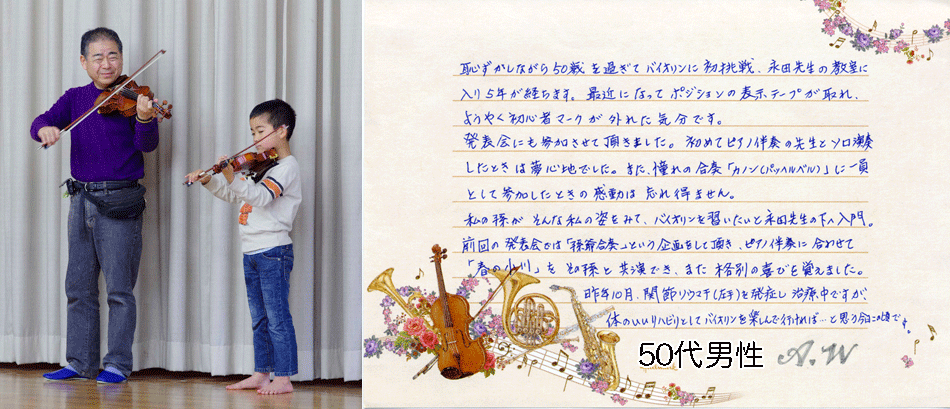 恥ずかしながら50歳を過ぎてバイオリンに初挑戦、永田先生の教室に
入り5年が経ちます。最近になってポジションの表示テープが取れ、
ようやく初心者マークが外れた気分です。
発表会にも参加させて頂きました。初めてピアノ伴奏の先生とソロ演奏
したときは夢心地でした。また、憧れの合奏「カノン(パッヘルベル)」に一員
として参加したときの感動は忘れ得ません。
私の孫がそんな私の姿をみて、バイオリンを習いたいと永田先生の下へ入門。
前回の発表会では「孫爺合奏」という企画をして頂き、ピアノ伴奏に合わせて
「春の小川」をその孫と共演でき、また格別の喜びを覚えました。
昨年10月、関節リウマチ(左手)を発症し治療中ですが、
体のいいリハビリとしてバイオリンを楽しんで行ければ…と思う今日この頃です。
50代男性 A.W